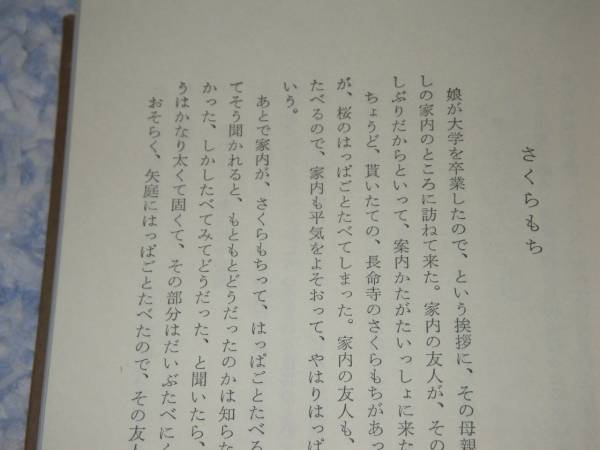 さくらもち
娘が大学を卒業したので、という挨拶に、その母親
しの家内のところに訪ねて来た。家内の友人が、その
しぶりだからといって、案内かたがたいっしょに来た
ちょうど、貰いたての、長命寺のさくらもちがあっ
が、桜のはっぱごとたべてしまった。家内の友人も、
たべるので、家内も平気をよそおって、やはりはっぱ
いう。
あとで家内が、さくらもちって、はっぱごとたべる
てそう聞かれると、もともとどうだったのかは知らな
かった、しかしたべてみてどうだった、と聞いたら、
うはかなり太くて固くて、その部分はだいぶたべにく
おそらく、矢庭にはっぱごとたべたので、その友人